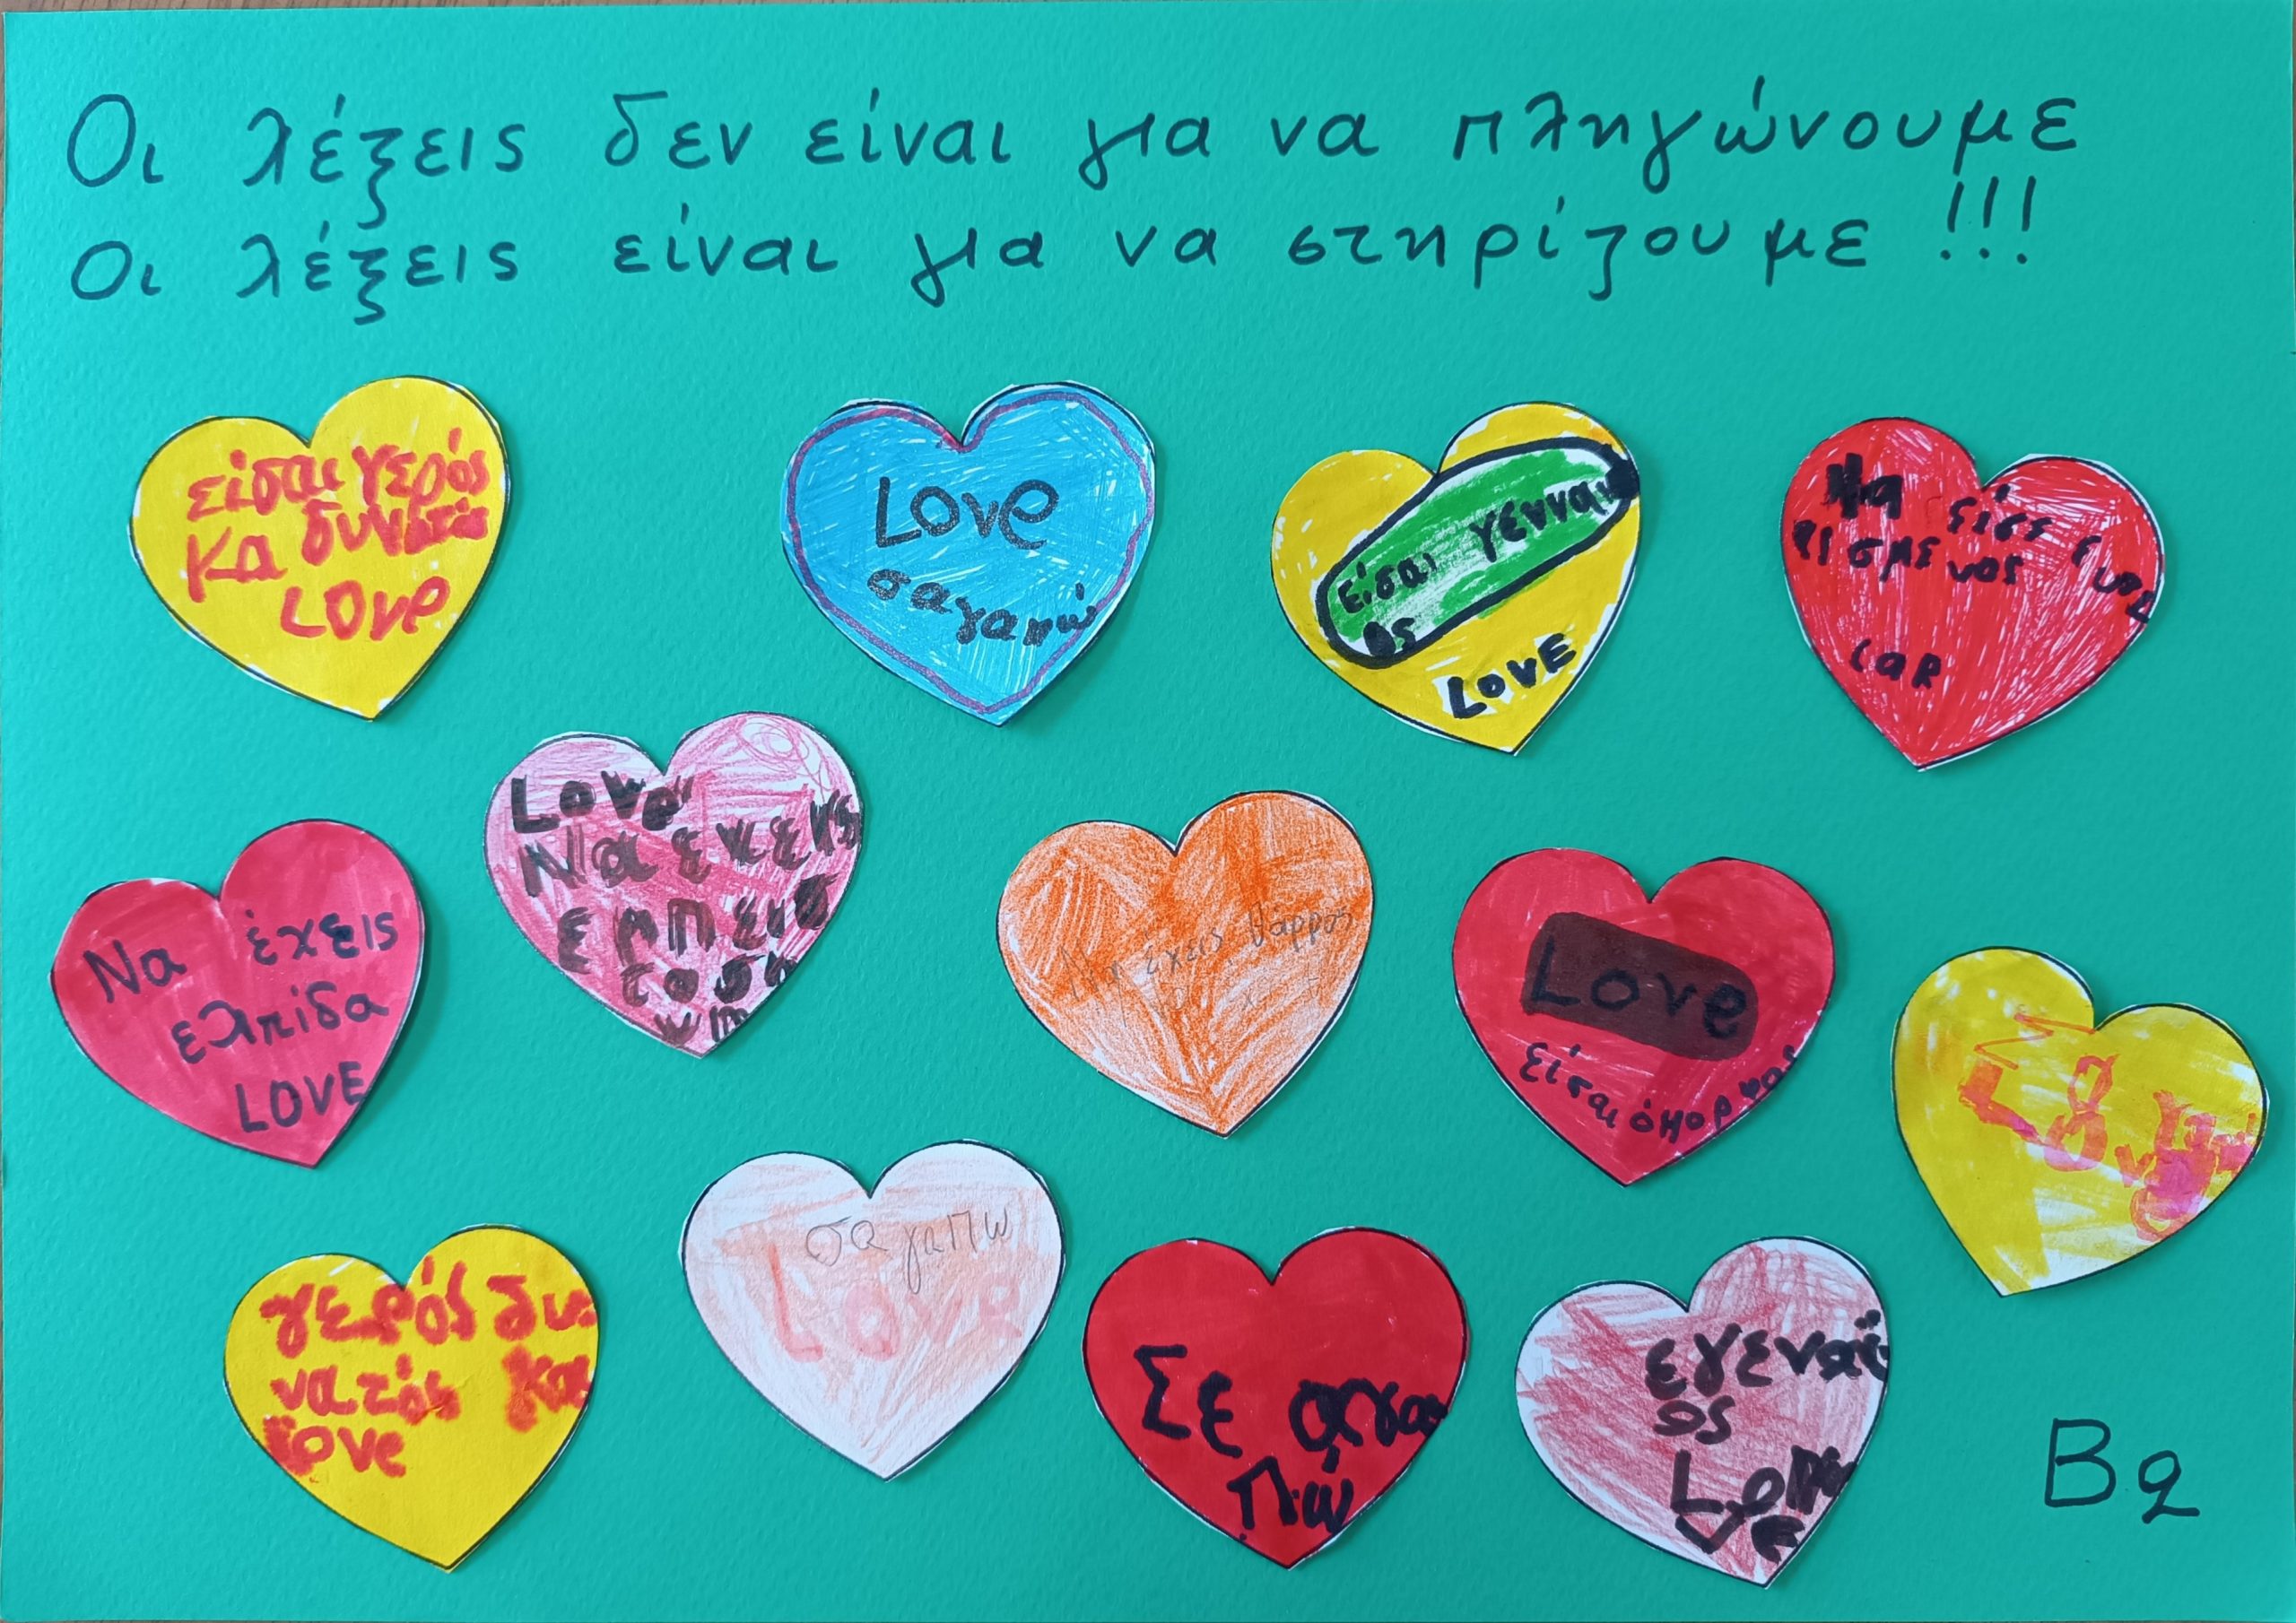 Οι λέξεις δεν είναι για να πληγώνουμε
Οι λέξεις είναι για να στηρίζουμε !!!
είσαι γερός
κα δυνατός
LOVe
Love
σαγαπώ
είσαι γενναι
ος
LOVE
Να
ρισμενος
car
Love
Να εχεις
εμπιστο
Να έχεις
ελπίδα
LOVE
Να έχεις θάρρος
Love
είσαι όμορφος
γερός δυ
νατός κα
love
σα γαπω
Love
Σε αγα
πώ
εγεναϊ
ος
Bq